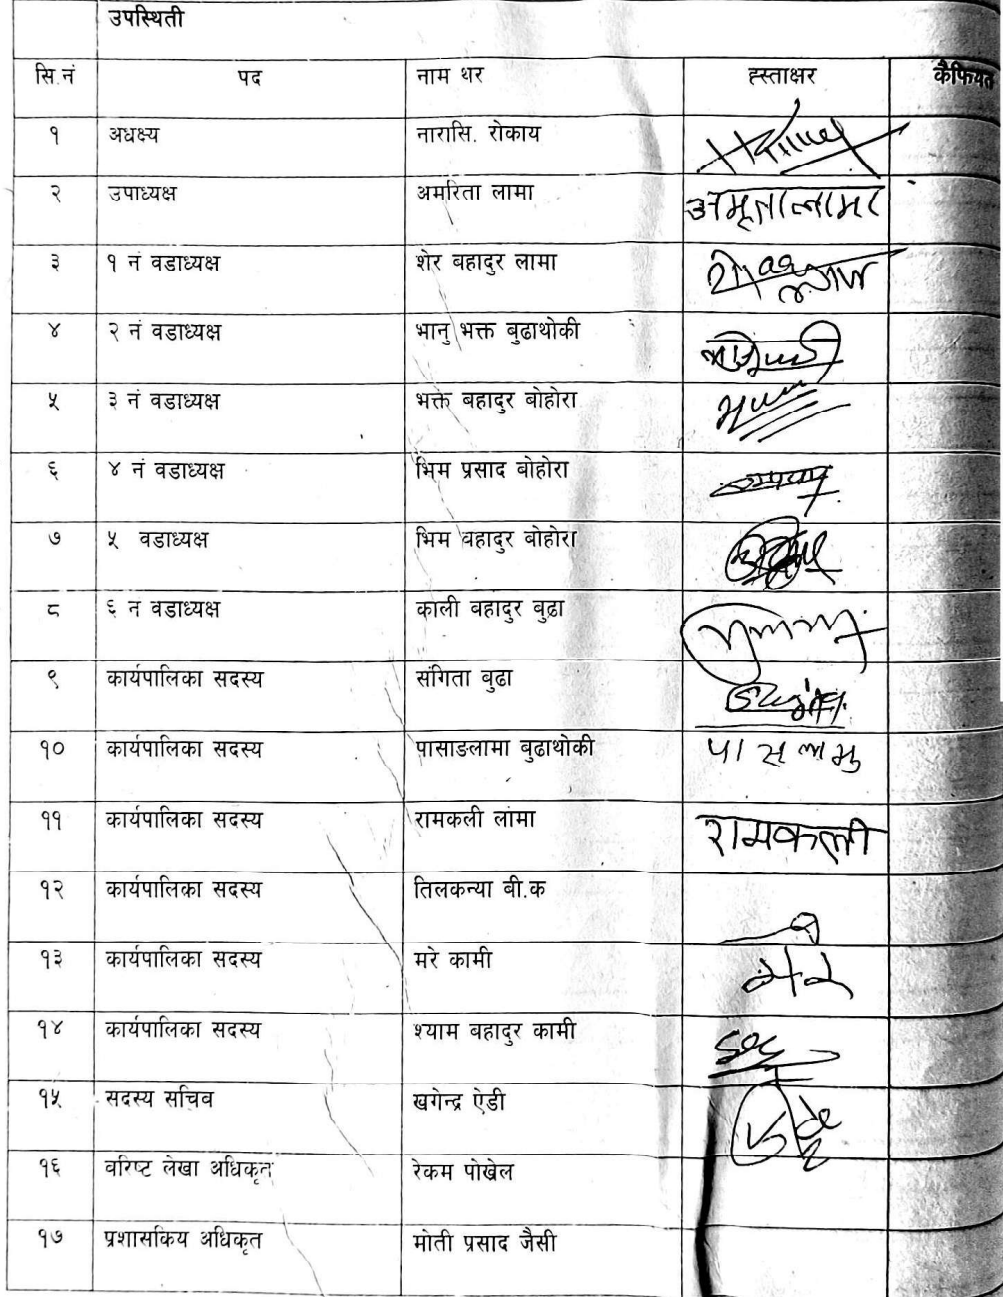 उपस्थिती
सि.नं पद नाम थर ह्स्ताक्षर कैफियत
१ अधक्ष्य नारासि. रोकाय
२ उपाध्यक्ष अमरिता लामा अमृता लामा
३ १ नं वडाध्यक्ष शेर बहादुर लामा
४ २ नं वडाध्यक्ष भानु भक्त बुढाथोकी
५ ३ नं वडाध्यक्ष भक्त बहादुर बोहोरा
६ ४ नं वडाध्यक्ष भिम प्रसाद बोहोरा
७ ५ वडाध्यक्ष भिम बहादुर बोहोरा
८ ६ न वडाध्यक्ष काली बहादुर बुढा
९ कार्यपालिका सदस्य संगिता बुढा
१० कार्यपालिका सदस्य पासाङलामा बुढाथोकी
११ कार्यपालिका सदस्य रामकली लामा रामकली
१२ कार्यपालिका सदस्य तिलकन्या बी.क
१३ कार्यपालिका सदस्य मरे कामी
१४ कार्यपालिका सदस्य श्याम बहादुर कामी
१५ सदस्य सचिव खगेन्द्र ऐडी
१६ वरिष्ट लेखा अधिकृत रेकम पोखेल
१७ प्रशासकिय अधिकृत मोती प्रसाद जैसी